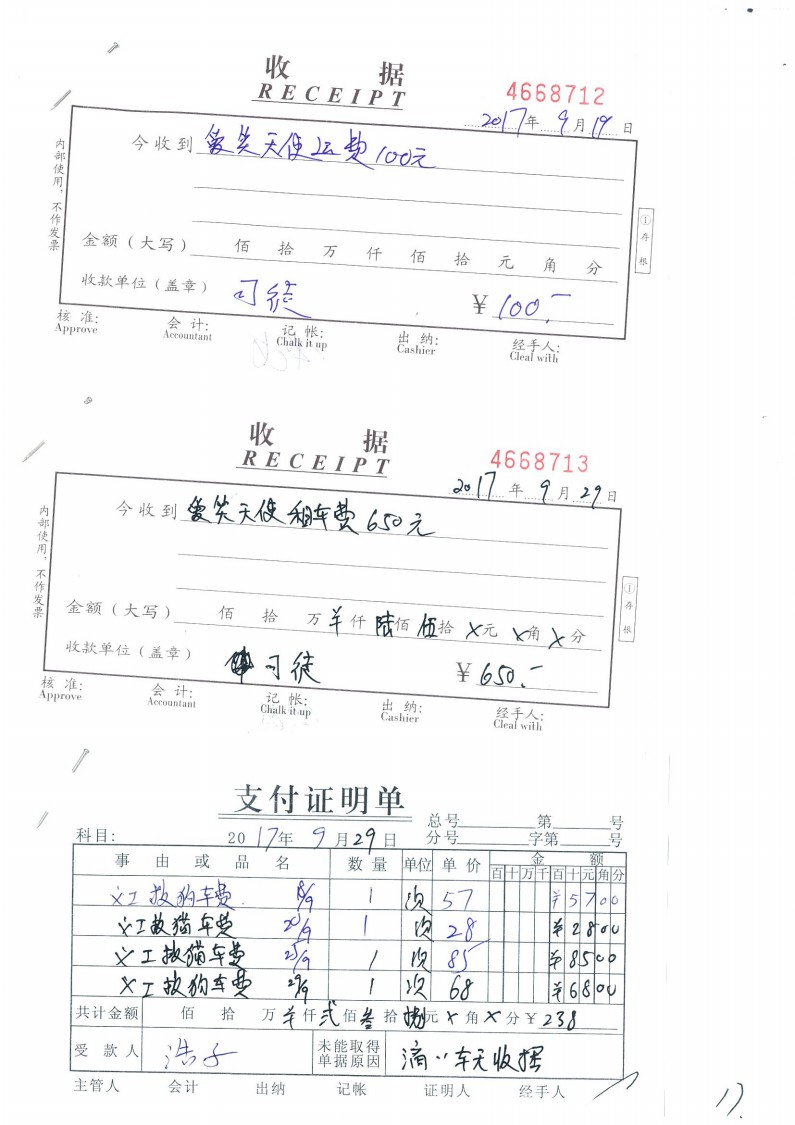 收 据
RECEIPT
4668712
2017年 9月19日
今收到 爱笑天使运费100元
金额(大写) 佰 拾 万 仟 佰 拾 元 角 分
收款单位(盖章) 司徒 ¥100.-
核 准: 会 计: 记 帐: 出 纳: 经手人:
Approve Accountant Chalk it up Cashier Cleal with
内部使用,不作发票
①存根
收 据
RECEIPT
4668713
2017年 9月29日
今收到 爱笑天使租车费650元
金额(大写) 佰 拾 万 羊仟 陆佰 伍拾 X元 X角 X分
收款单位(盖章) 司徒 ¥650.-
核 准: 会 计: 记 帐: 出 纳: 经手人:
Approve Accountant Chalk it up Cashier Cleal with
内部使用,不作发票
①存根
支付证明单
总号 第 号
科目: 2017年 9月29日 分号 字第 号
事 由 或 品 名 数 量 单位 单 价 金 额
百十万千百十元角分
义工救狗车费 1 次 57 ¥5700
义工救猫车费 20/9 1 次 28 ¥2800
义工救猫车费 25/9 1 次 85 ¥8500
义工救狗车费 29/9 1 次 68 ¥6800
共计金额 佰 拾 万 羊仟 弍佰 叁拾 捌元 X角 X分 ¥238
受 款 人 浩子 未能取得单据原因 滴滴车无收据
主管人 会计 出纳 记帐 证明人 经手人
17.